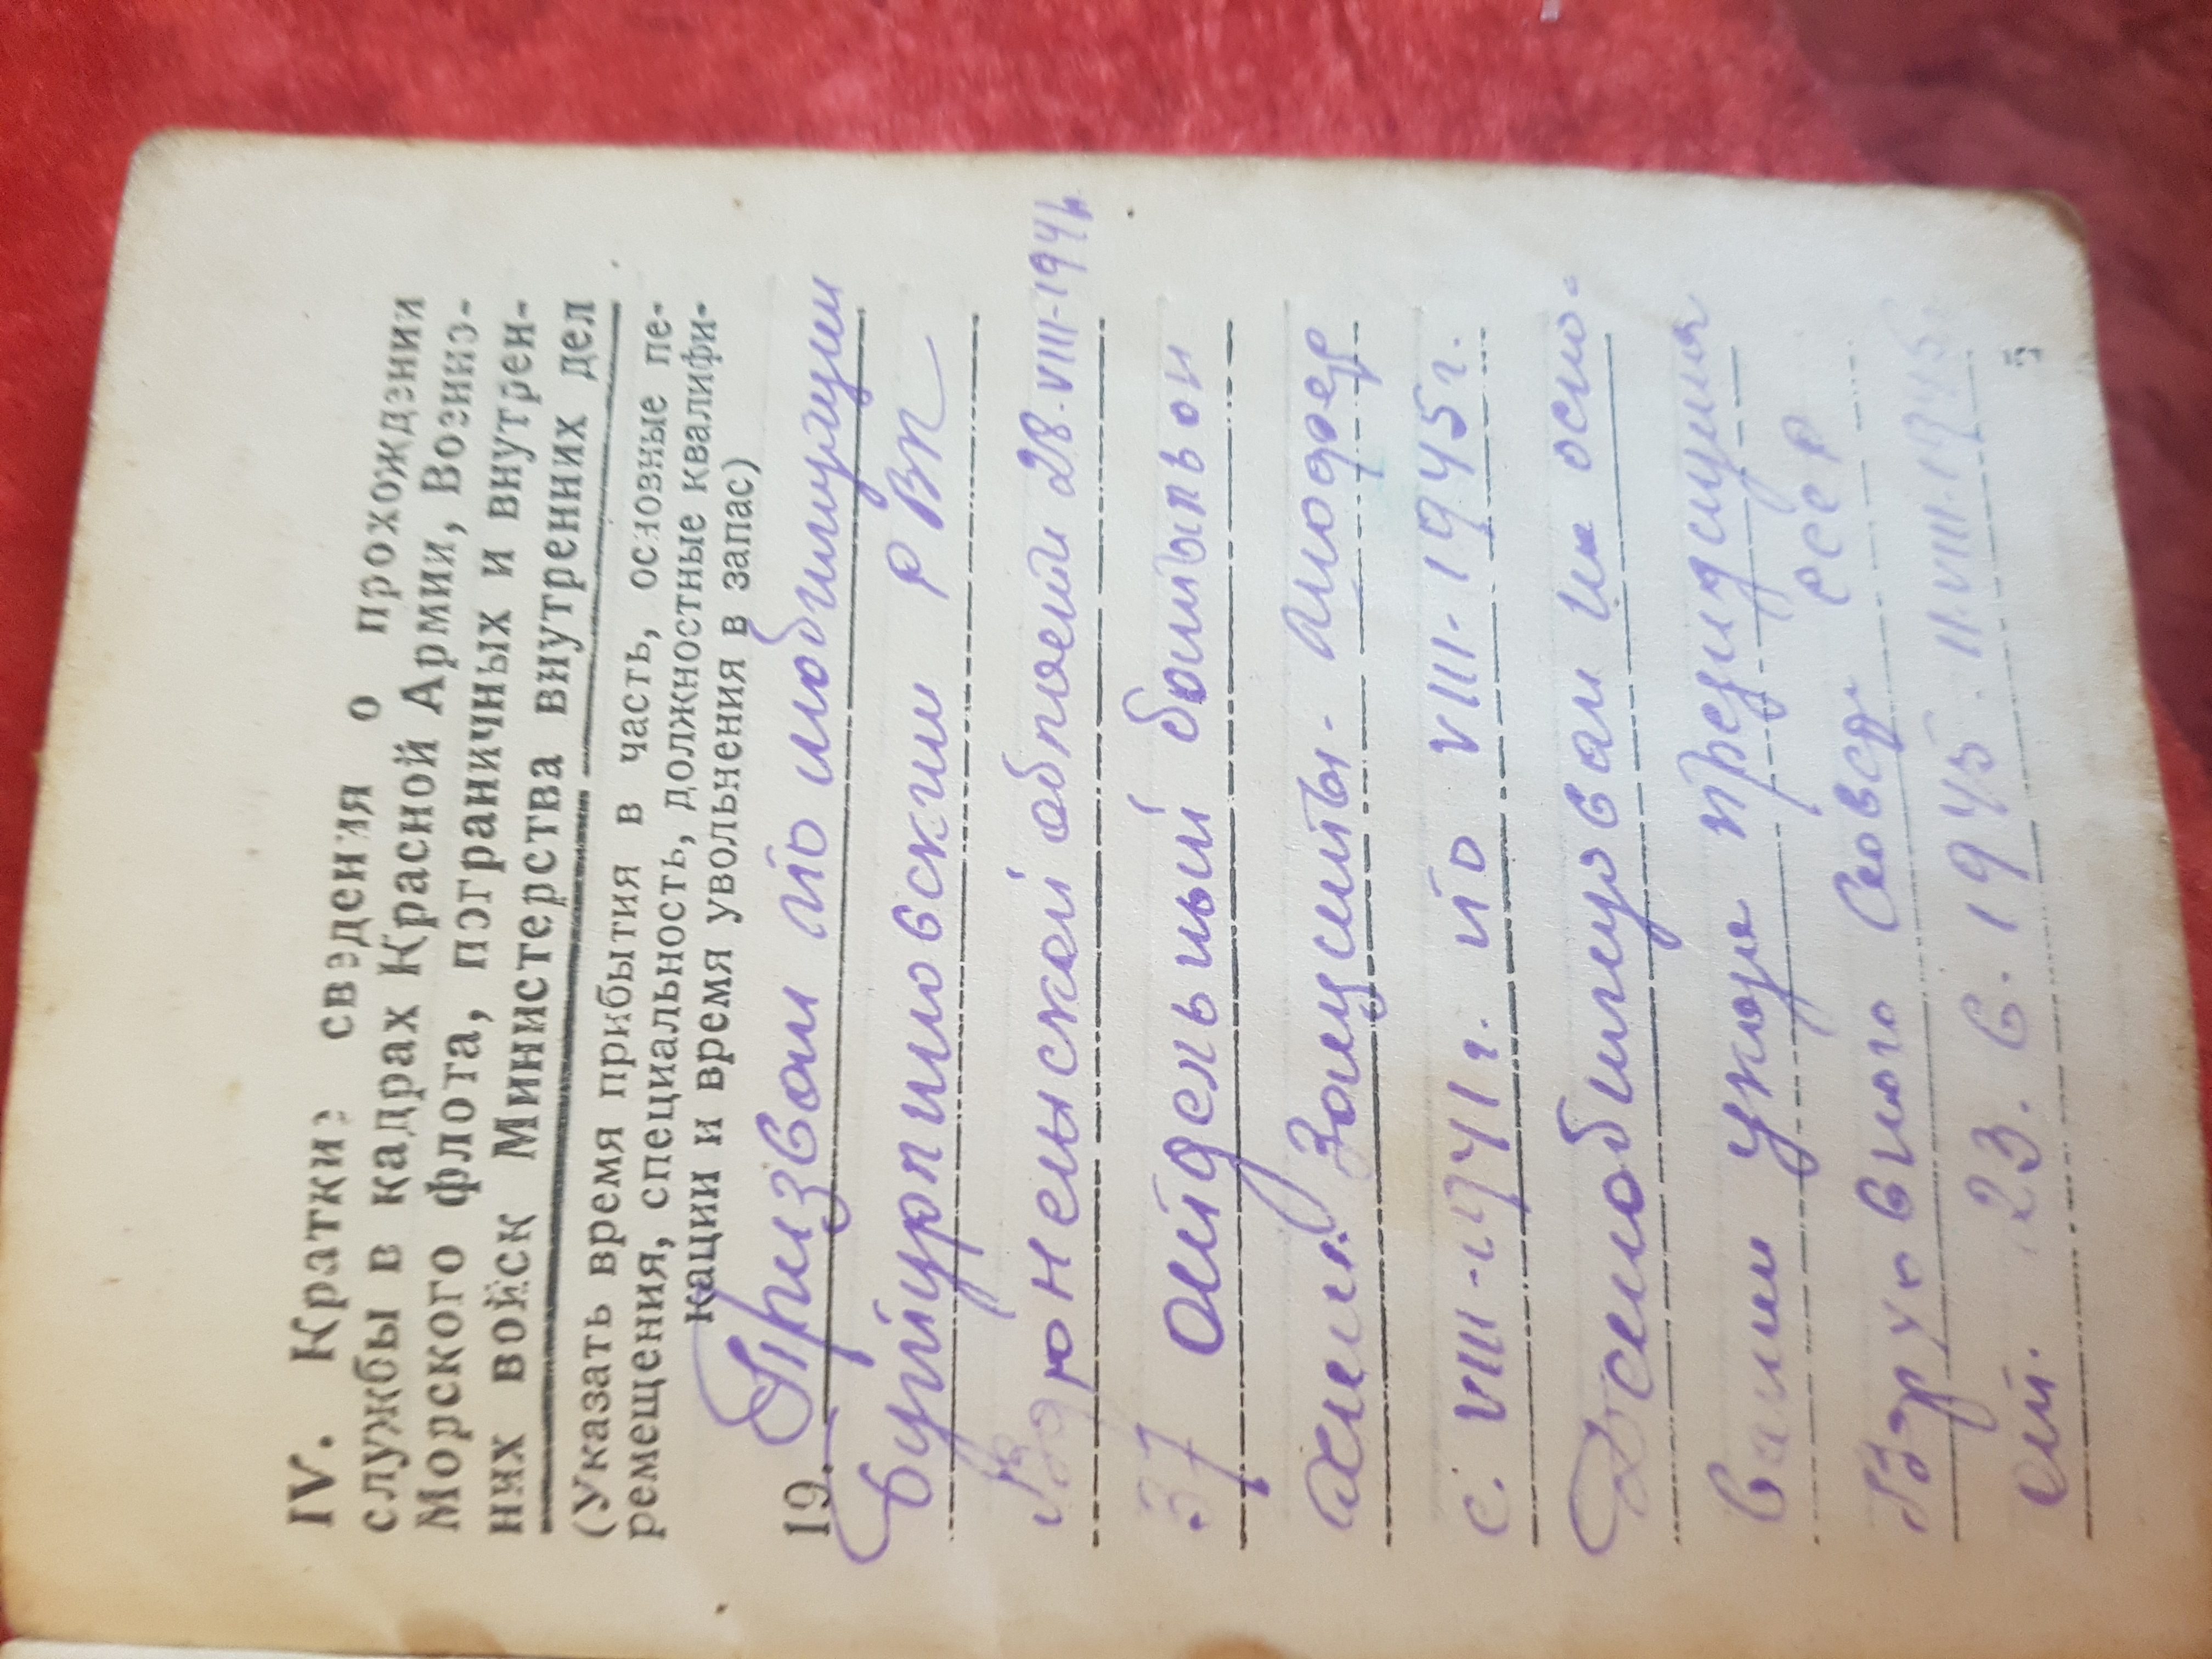 IV. Краткие сведения о прохождении
службы в кадрах Красной Армии, Военно-
Морского флота, пограничных и внутрен-
них войск Министерства внутренних дел
(Указать время прибытия в часть, основные пе-
ремещения, специальность, должностные квалифи-
кации и время увольнения в запас)
19. Призван по мобилизации
РВК
28.VIII-1941г.
37 отдельный батальон
с. VIII-1941г. по VIII-1945г.
Демобилизован на осно-
вании указа президиума
Верховного Совета СССР
от. 23.6.1945. 11.VIII.1945г.
5